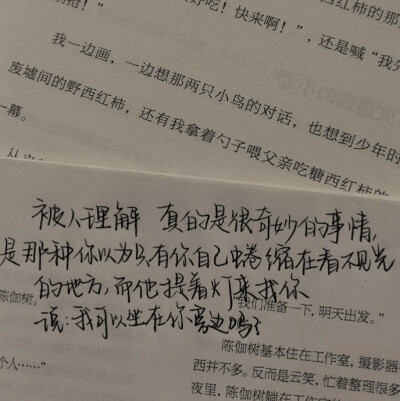 好吃！快来啊！”，还是喊“我先
我一边画，一边想那两只小鸟的对话，也想到少年时
废墟间的野西红柿，还有我拿着勺子喂父亲吃糖西红柿的
一幕。
被人理解 真的是很奇妙的事情，
是那种你以为只有你自己蜷缩在看不见光
的地方，而他提着灯来找你
说：我可以坐在你旁边吗？
陈伽树。
我们准备一下，明天出发。”
陈伽树基本住在工作室，摄影器
个人……”
西并不多。反而是云笑，忙着整理很多
夜里，陈伽树躺在工作室的